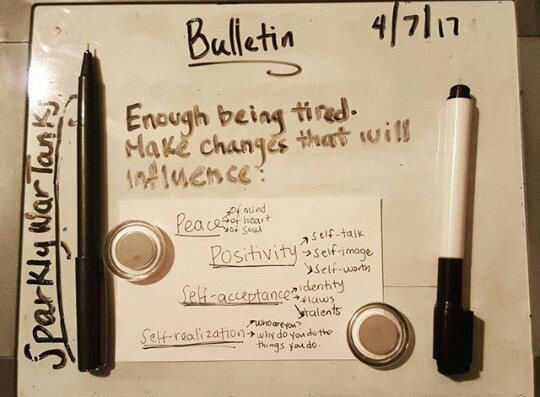 Bulletin
4/7/17
Sparkly War Tanks
Enough being tired.
Make changes that will
influence:
Peace → of mind
→ of heart
→ of soul
Positivity → self-talk
→ self-image
→ self-worth
Self-acceptance → identity
→ flaws
→ talents
Self-realization → who are you?
why do you do the
things you do.